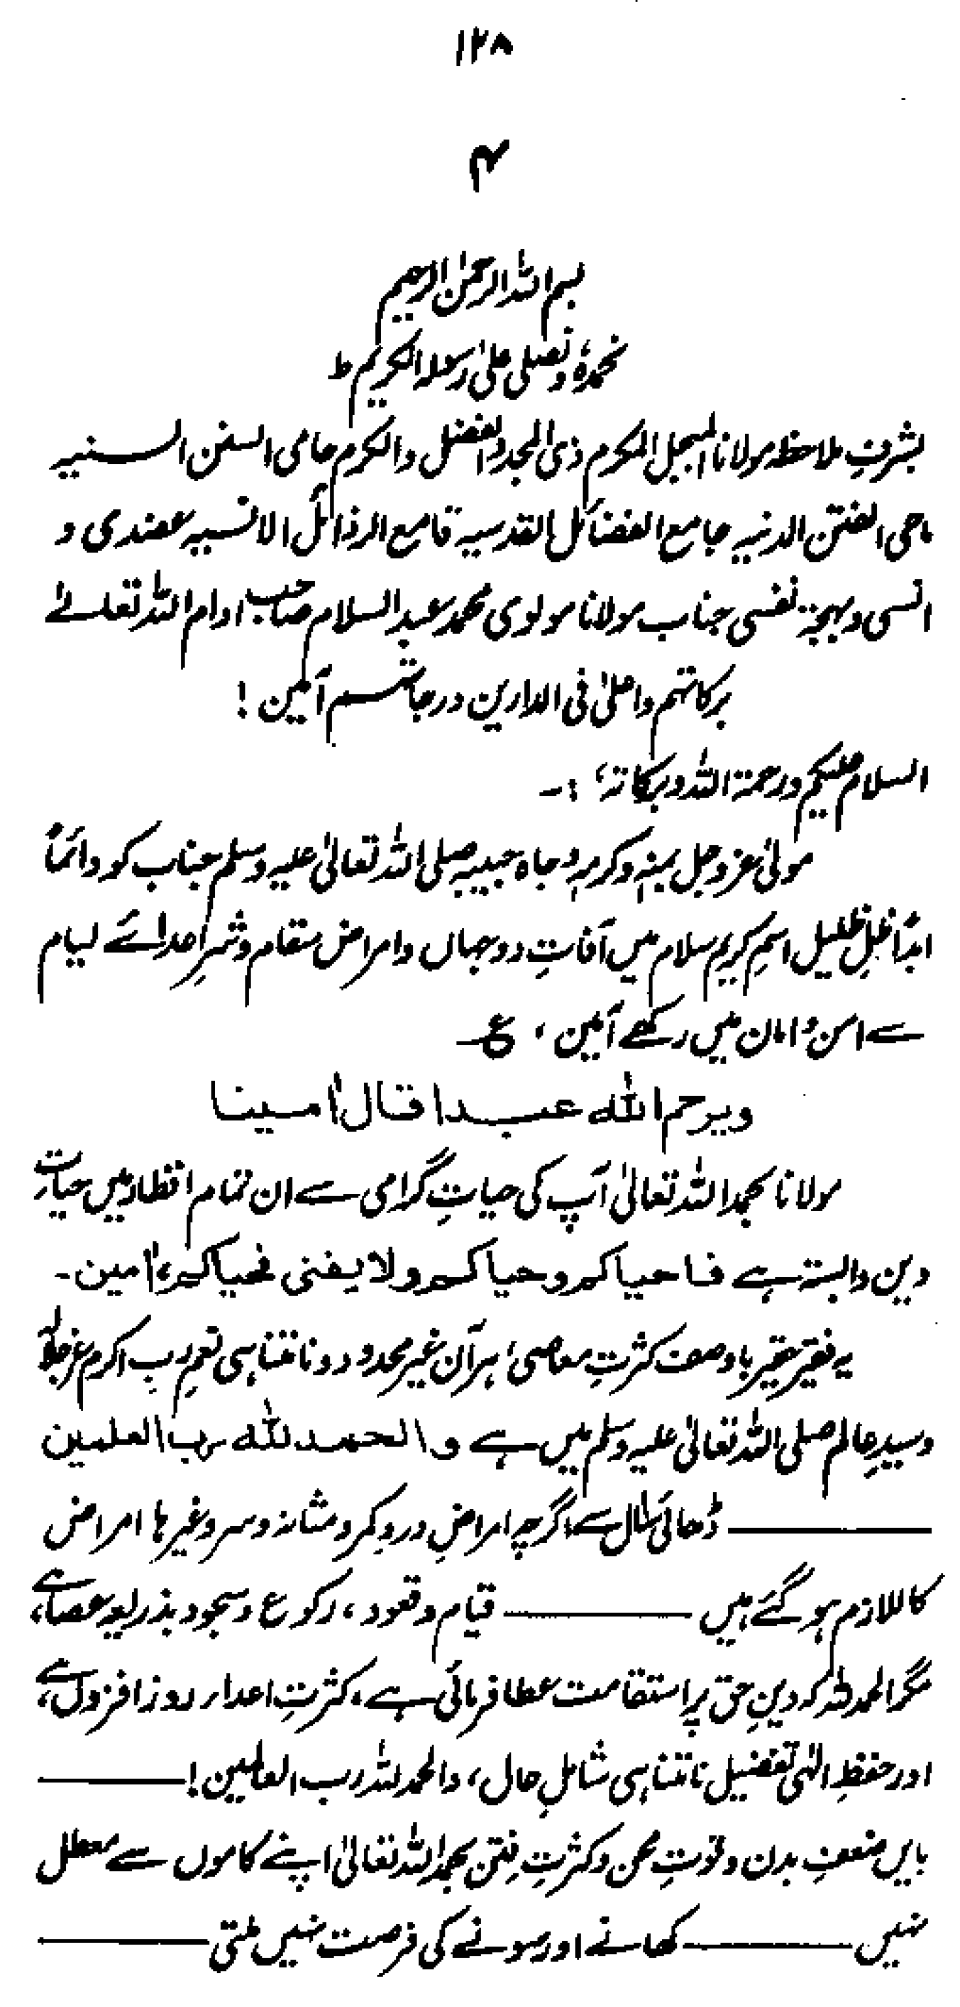 ۱۲۸
۴
بسم اللہ الرحمٰن الرحیم
نحمدہٗ ونصلی علیٰ رسولہ الکریم ط
بشرفِ ملاحظہ مولانا المبجل المکرم ذی المجد والفضل والکرم حامی السنن السنیہ
ماحی الفتن الدنیہ جامع الفضائل القدسیہ قامع الرذائل الانسیہ عضدی و
انسی وبہجۃ نفسی جناب مولانا مولوی محمد عبدالسلام صاحب ادام اللہ تعالےٰ
برکاتہم واعلیٰ فی الدارین درجاتہم آمین !
السلام علیکم ورحمۃ اللہ وبرکاتہ، :۔
مولیٰ عزوجل بمنہٖ وکرمہٖ وجاہ حبیبہٖ صلی اللہ تعالیٰ علیہ وسلم جناب کو دائماً
ابداً ظلِ ظلیل اسمِ کریم سلام میں آفاتِ دوجہاں وامراض سقام وشرِ اعدائے لیام
سے امن وامان میں رکھے آمین، ع
ویرحم اللہ عبدا قال اٰمینا
مولانا بحمد اللہ تعالیٰ آپ کی حیاتِ گرامی سے ان تمام اقطار میں حیاتِ
دین وابستہ ہے فاحیاکم وحیاکم ولا یفنی محیاکم، اٰمین۔
یہ فقیر حقیر باوصف کثرتِ معاصی، ہر آن غیر محدود ونامتناہی نعمِ ربِ اکرم عزجلالہٗ
وسیدِ عالم صلی اللہ تعالیٰ علیہ وسلم میں ہے والحمد للہ رب العلمین
——— ڈھائی سال سے اگرچہ امراضِ درد کمر ومثانہ وسر وغیرہا امراض
کاللازم ہوگئے ہیں ——— قیام وقعود، رکوع وسجود بذریعہ عصا ہے،
مگر الحمد للہ کہ دینِ حق پر استقامت عطا فرمائی ہے، کثرتِ اعدار روز افزوں ہے،
اور حفظِ الٰہی تفضیل نامتناہی شاملِ حال، والحمد للہ رب العالمین! ———
بایں ضعفِ بدن وقوتِ محن وکثرتِ فتن بحمد اللہ تعالیٰ اپنے کاموں سے معطل
نہیں ——— کھانے اور سونے کی فرصت نہیں ملتی ———